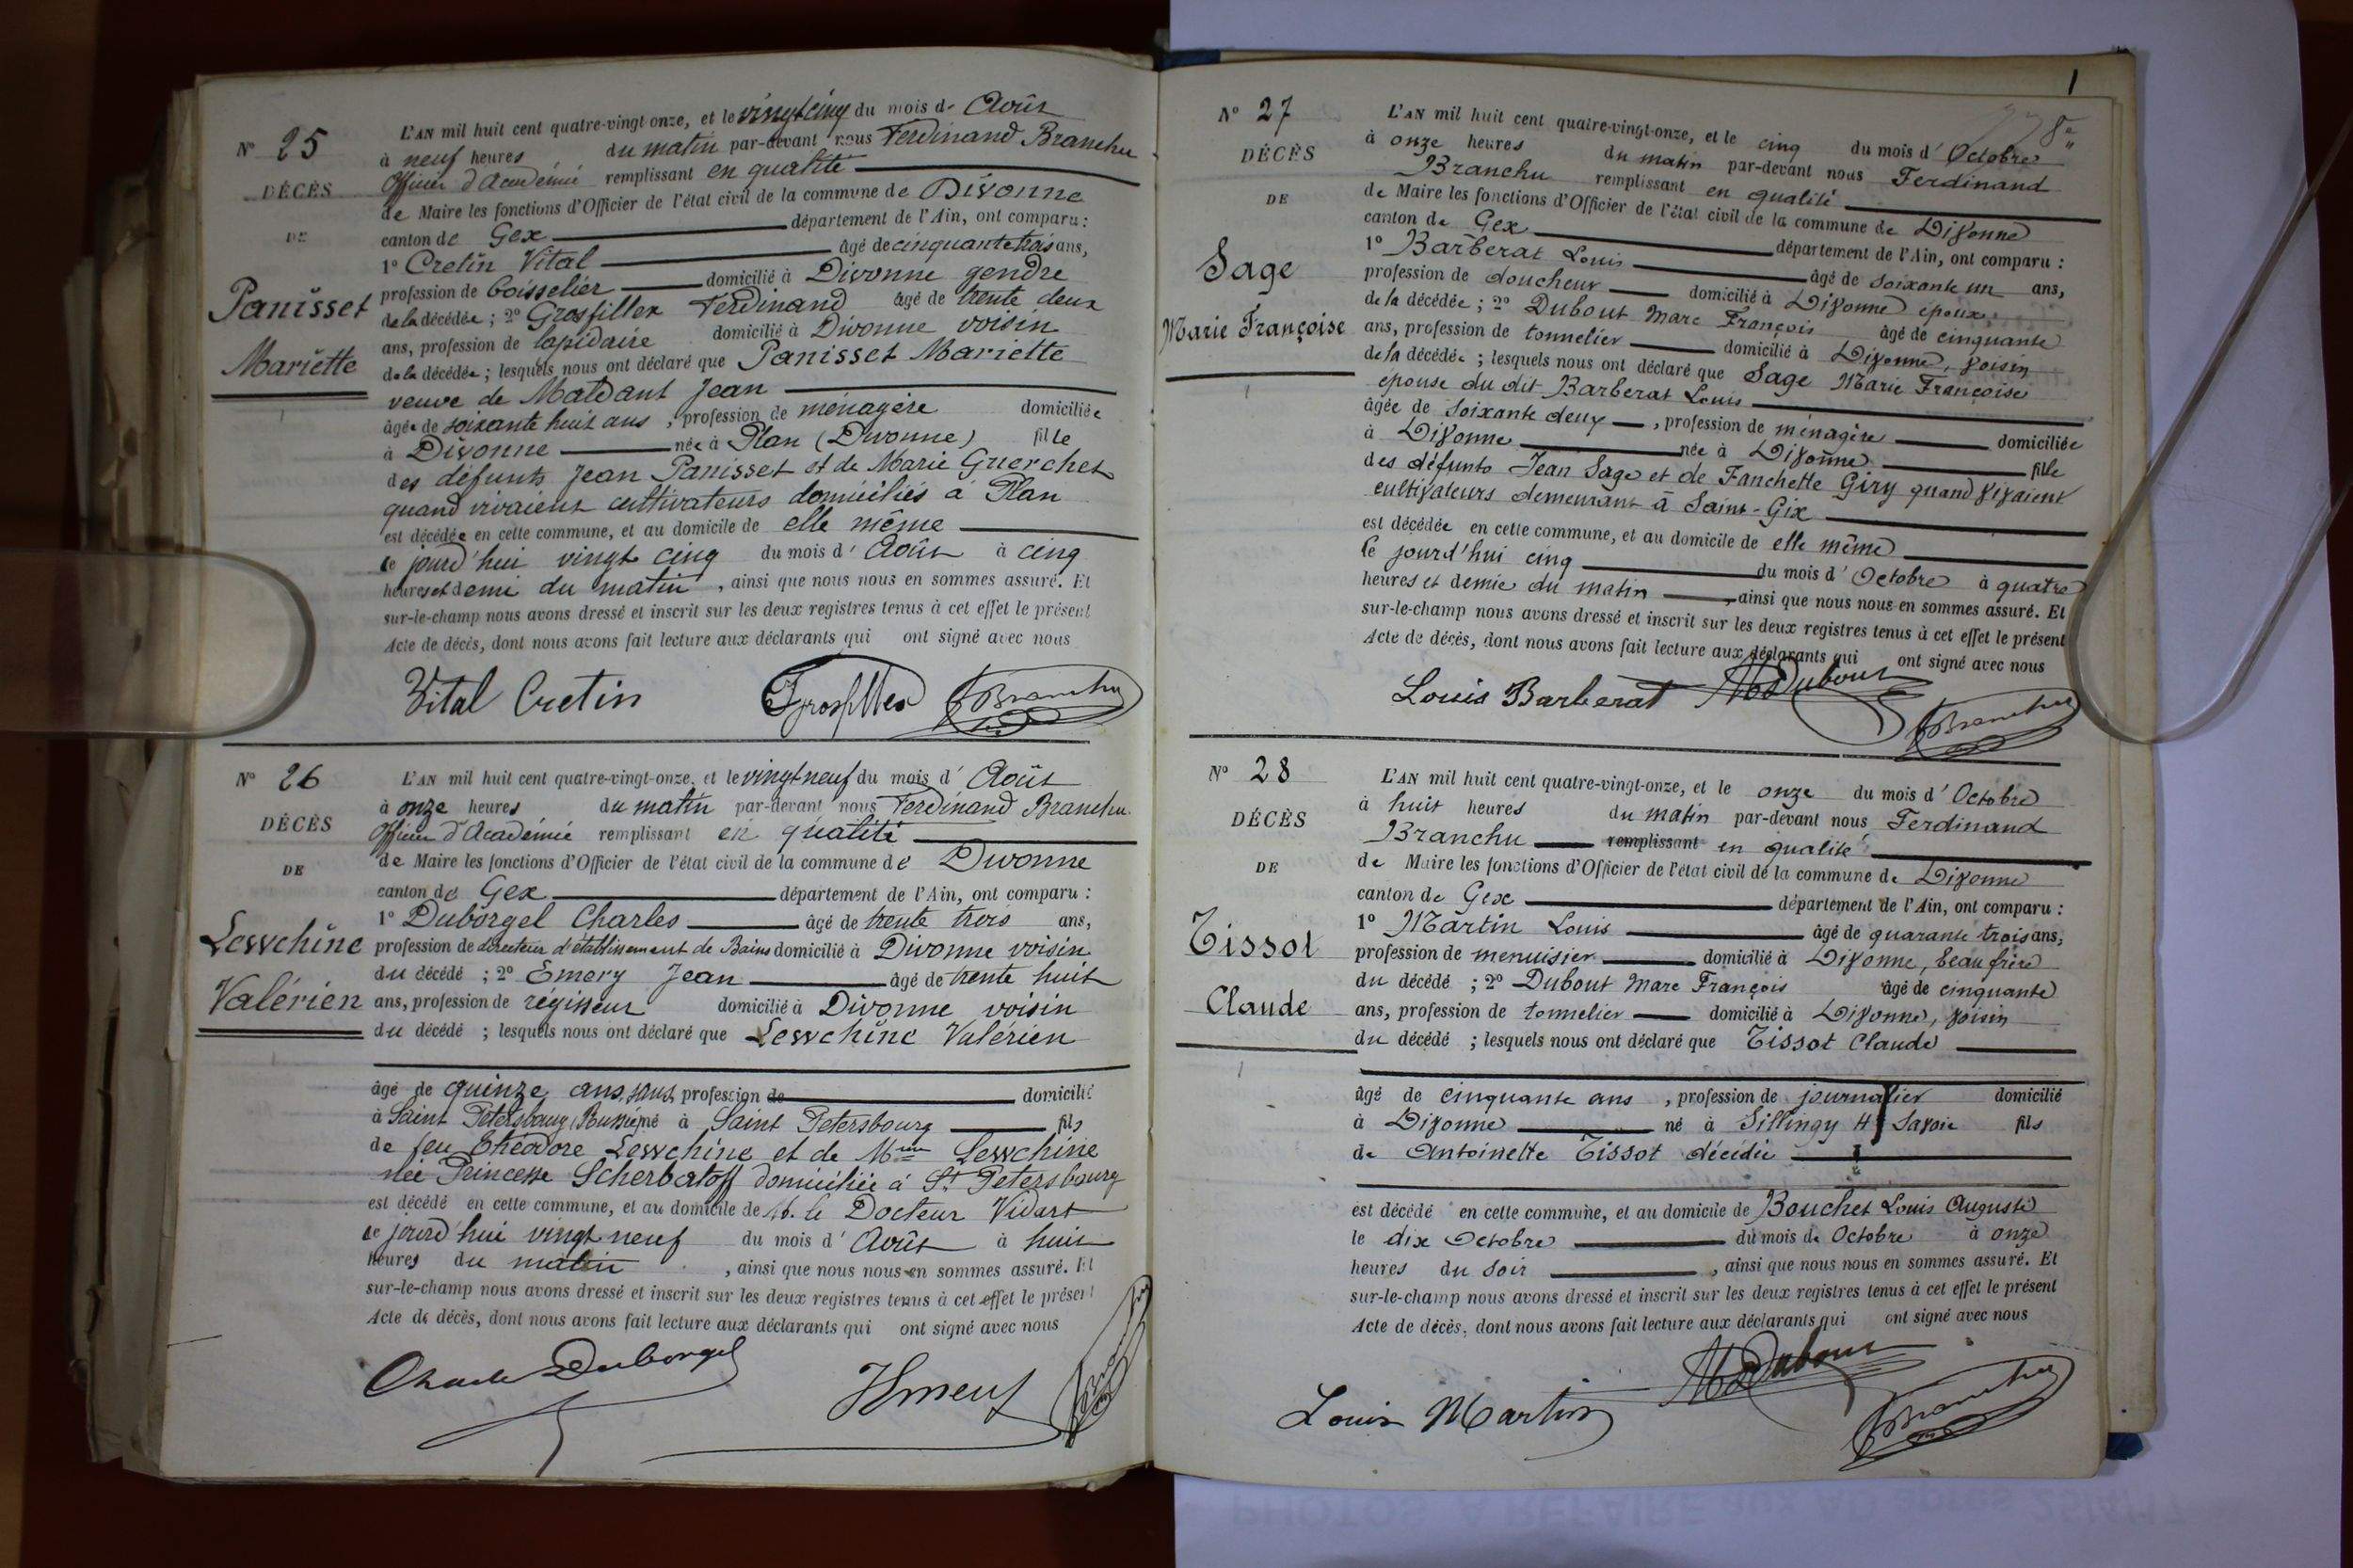 N° 25
DÉCÈS
DE
Panisset
Mariette
L'AN mil huit cent quatre-vingt onze, et le vingt cinq du mois d' Août
à neuf heures du matin par-devant nous Ferdinand Branchu
Officier d'Académie remplissant en qualité
de Maire les fonctions d'Officier de l'état civil de la commune de Divonne
canton de Gex département de l'Ain, ont comparu :
1° Cretin Vital âgé de cinquante trois ans,
profession de boisselier domicilié à Divonne gendre
de la décédée ; 2° Grosfillex Ferdinand âgé de trente deux
ans, profession de lapidaire domicilié à Divonne voisin
de la décédée ; lesquels nous ont déclaré que Panisset Mariette
veuve de Maldant Jean
âgée de soixante huit ans , profession de ménagère domiciliée
à Divonne née à Plan (Divonne) fille
des défunts Jean Panisset et de Marie Guerchet
quand vivaient cultivateurs domiciliés à Plan
est décédée en cette commune, et au domicile de elle même
ce jourd'hui vingt cinq du mois d' Août à cinq
heures et demi du matin , ainsi que nous nous en sommes assuré. Et
sur-le-champ nous avons dressé et inscrit sur les deux registres tenus à cet effet le présent
Acte de décès, dont nous avons fait lecture aux déclarants qui ont signé avec nous
Vital Cretin Grosfillex Branchu
N° 26
DÉCÈS
DE
Lewchine
Valérien
L'AN mil huit cent quatre-vingt-onze, et le vingt neuf du mois d' Août
à onze heures du matin par-devant nous Ferdinand Branchu
Officier d'Académie remplissant en qualité
de Maire les fonctions d'Officier de l'état civil de la commune de Divonne
canton de Gex département de l'Ain, ont comparu :
1° Duborgel Charles âgé de trente trois ans,
profession de directeur d'établissement de Bains domicilié à Divonne voisin
du décédé ; 2° Emery Jean âgé de trente huit
ans, profession de régisseur domicilié à Divonne voisin
du décédé ; lesquels nous ont déclaré que Lewchine Valérien
âgé de quinze ans, sans profession de domicilié
à Saint Petersbourg (Russie) né à Saint Petersbourg fils
de feu Théodore Lewchine et de Mme Lewchine
née Princesse Scherbatoff domiciliée à St Petersbourg
est décédé en cette commune, et au domicile de M. le Docteur Vidart
ce jourd'hui vingt neuf du mois d' Août à huit
heures du matin , ainsi que nous nous en sommes assuré. Et
sur-le-champ nous avons dressé et inscrit sur les deux registres tenus à cet effet le présent
Acte de décès, dont nous avons fait lecture aux déclarants qui ont signé avec nous
Charles Duborgel
1
N° 27
DÉCÈS
DE
Sage
Marie Françoise
L'AN mil huit cent quatre-vingt-onze, et le cinq du mois d' Octobre
à onze heures du matin par-devant nous Ferdinand
Branchu remplissant en qualité
de Maire les fonctions d'Officier de l'état civil de la commune de Divonne
canton de Gex département de l'Ain, ont comparu :
1° Barberat Louis âgé de soixante un ans,
profession de doucheur domicilié à Divonne époux
de la décédée ; 2° Dubout Marc François âgé de cinquante
ans, profession de tonnelier domicilié à Divonne, voisin
de la décédée ; lesquels nous ont déclaré que Sage Marie Françoise
épouse du dit Barberat Louis
âgée de soixante deux , profession de ménagère domiciliée
à Divonne née à Divonne fille
des défunts Jean Sage et de Fanchette Giry quand vivaient
cultivateurs demeurant à Saint-Gix
est décédée en cette commune, et au domicile de elle même
le jourd'hui cinq du mois d' Octobre à quatre
heures et demie du matin , ainsi que nous nous en sommes assuré. Et
sur-le-champ nous avons dressé et inscrit sur les deux registres tenus à cet effet le présent
Acte de décès, dont nous avons fait lecture aux déclarants qui ont signé avec nous
Louis Barberat MDubout Branchu
N° 28
DÉCÈS
DE
Tissot
Claude
L'AN mil huit cent quatre-vingt-onze, et le onze du mois d' Octobre
à huit heures du matin par-devant nous Ferdinand
Branchu remplissant en qualité
de Maire les fonctions d'Officier de l'état civil de la commune de Divonne
canton de Gex département de l'Ain, ont comparu :
1° Martin Louis âgé de quarante trois ans,
profession de menuisier domicilié à Divonne, beau frère
du décédé ; 2° Dubout Marc François âgé de cinquante
ans, profession de tonnelier domicilié à Divonne, voisin
du décédé ; lesquels nous ont déclaré que Tissot Claude
âgé de cinquante ans , profession de journalier domicilié
à Divonne né à Sillingy Hte Savoie fils
de Antoinette Tissot décédée
est décédé en cette commune, et au domicile de Bouchet Louis Auguste
le dix Octobre du mois de Octobre à onze
heures du soir , ainsi que nous nous en sommes assuré. Et
sur-le-champ nous avons dressé et inscrit sur les deux registres tenus à cet effet le présent
Acte de décès, dont nous avons fait lecture aux déclarants qui ont signé avec nous
Louis Martin MDubout Branchu